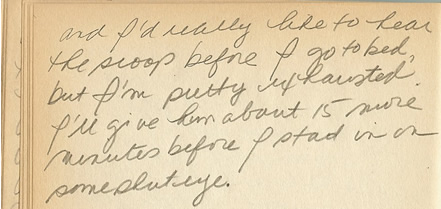 and I'd really like to hear
the scoop before I go to bed,
but I'm pretty exhausted.
I'll give him about 15 more
minutes before I start in on
some shut eye.